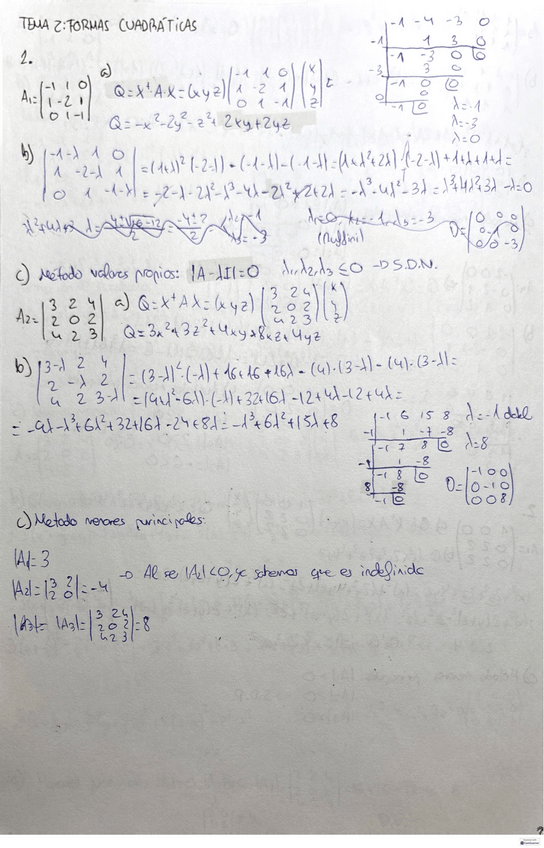 TEMA 2: FORMAS CUADRÁTICAS
1.
A₁ = |-1 1 0|
|1 -2 1|
|0 1 -1|
a) Q = XᵗAX = (x y z) (-1 1 0) (x)
(1 -2 1) (y)
(0 1 -1) (z)
Q = -x² - 2y² - z² + 2xy + 2yz
-1 -4 -3 0
-1 1 3 0
-1 -3 0 0
-3 3 0
-1 0 0
0 0
-1 0
λ = -1
λ = -3
λ = 0
b) |-1-λ 1 0|
|1 -2-λ 1|
|0 1 -1-λ|
= (1+λ)²(-2-λ) - (-1-λ) - (-1-λ) = (1+λ²+2λ)(-2-λ) + 1+λ+1+λ =
= -2-λ-2λ²-λ³-4λ-2λ²+2+2λ = -λ³-4λ²-3λ = λ³+4λ²+3λ-λ=0
λ₁=0 λ₂=-1 λ₃=-3
(Ruffini)
D = (0 0 0)
(0 -1 0)
(0 0 -3)
c) Metodo valores propios: |A-λI|=0 λ₁,λ₂,λ₃ ≤ 0 → S.D.N.
A₂ = |3 2 4|
|2 0 2|
|4 2 3|
a) Q = XᵗAX = (x y z) (3 2 4) (x)
(2 0 2) (y)
(4 2 3) (z)
Q = 3x² + 3z² + 4xy + 8xz + 4yz
b) |3-λ 2 4|
|2 -λ 2|
|4 2 3-λ|
= (3-λ)²(-λ) + 16 + 16 + 16λ - (4)·(3-λ) - (4)·(3-λ) =
= (9+λ²-6λ)(-λ) + 32 + 16λ - 12 + 4λ - 12 + 4λ =
= -9λ-λ³+6λ²+32+16λ-24+8λ = -λ³+6λ²+15λ+8
-1 6 15 8
-1 1 -7 -8
-1 7 8 0
-1 1 -8
-1 8 0
8 -8
-1 0
λ = -1 doble
λ = 8
D = (-1 0 0)
(0 -1 0)
(0 0 8)
c) Metodo menores principales:
|A₁| = 3
|A₂| = |3 2|
|2 0|
= -4 → Al ser |A₂| < 0, ya sabemos que es indefinida
|A₃| = |3 2 4|
|2 0 2|
|4 2 3|
= 8